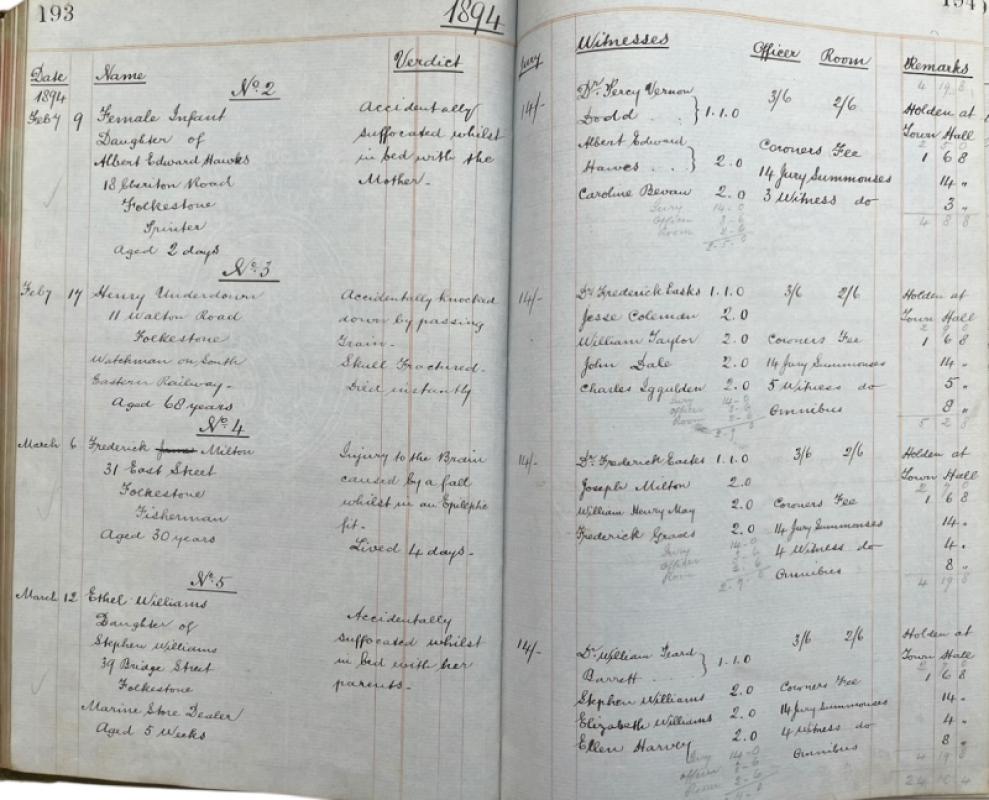 193
1894
Date
Name
Verdict
1894
Nº 2
Feby 9 Female Infant
Daughter of
Albert Edward Hawks
18 Cheriton Road
Folkestone
Spinster
Aged 2 days
Accidentally
suffocated whilst
in bed with the
Mother.
Nº 3
Feby 17 Henry Underdown
11 Walton Road
Folkestone
Watchman on South
Eastern Railway.
Aged 68 years
Accidentally knocked
down by passing
Train.
Skull Fractured.
Died instantly
Nº 4
March 6 Frederick Milton
31 East Street
Folkestone
Fisherman
Aged 30 years
Injury to the Brain
caused by a fall
whilst in an Epileptic
fit.
Lived 4 days.
Nº 5
March 12 Ethel Williams
Daughter of
Stephen Williams
39 Bridge Street
Folkestone
Marine Store Dealer
Aged 5 Weeks
Accidentally
suffocated whilst
in bed with her
parents.
Jury
Witnesses
Officer Room
Remarks
14/-
Dr. Percy Vernon
Dodd } 1.1.0
3/6 2/6
Holden at
Town Hall
Albert Edward
Hawes } 2.0
Coroners Fee 1 6 8
14 Jury Summonses 14 "
Caroline Bevan 2.0
3 Witness do 3 "
Jury 14-0
Officer 3-6
Room 2-6
4 8 8
14/-
Dr. Frederick Eastes 1.1.0
3/6 2/6
Holden at
Town Hall
Jesse Coleman 2.0
William Taylor 2.0
Coroners Fee 1 6 8
John Dale 2.0
14 Jury Summonses 14 "
Charles Iggulden 2.0
5 Witness do 5 "
Omnibus 8 "
Jury 14-0
Officer 3-6
Room 2-6
5 2 8
14/-
Dr. Frederick Eastes 1.1.0
3/6 2/6
Holden at
Town Hall
Joseph Milton 2.0
William Henry May 2.0
Coroners Fee 1 6 8
Frederick 2.0
14 Jury Summonses 14 "
4 Witness do 4 "
Omnibus 8 "
Jury 14-0
Officer 3-6
Room 2-6
4 19 8
14/-
Dr. William Teard
Barrett } 1.1.0
3/6 2/6
Holden at
Town Hall
Stephen Williams 2.0
Coroners Fee 1 6 8
Elizabeth Williams 2.0
14 Jury Summonses 14 "
Ellen Harvey 2.0
4 Witness do 4 "
Omnibus 8 "
Jury 14-0
Officer 3-6
Room 2-6
4 19 8